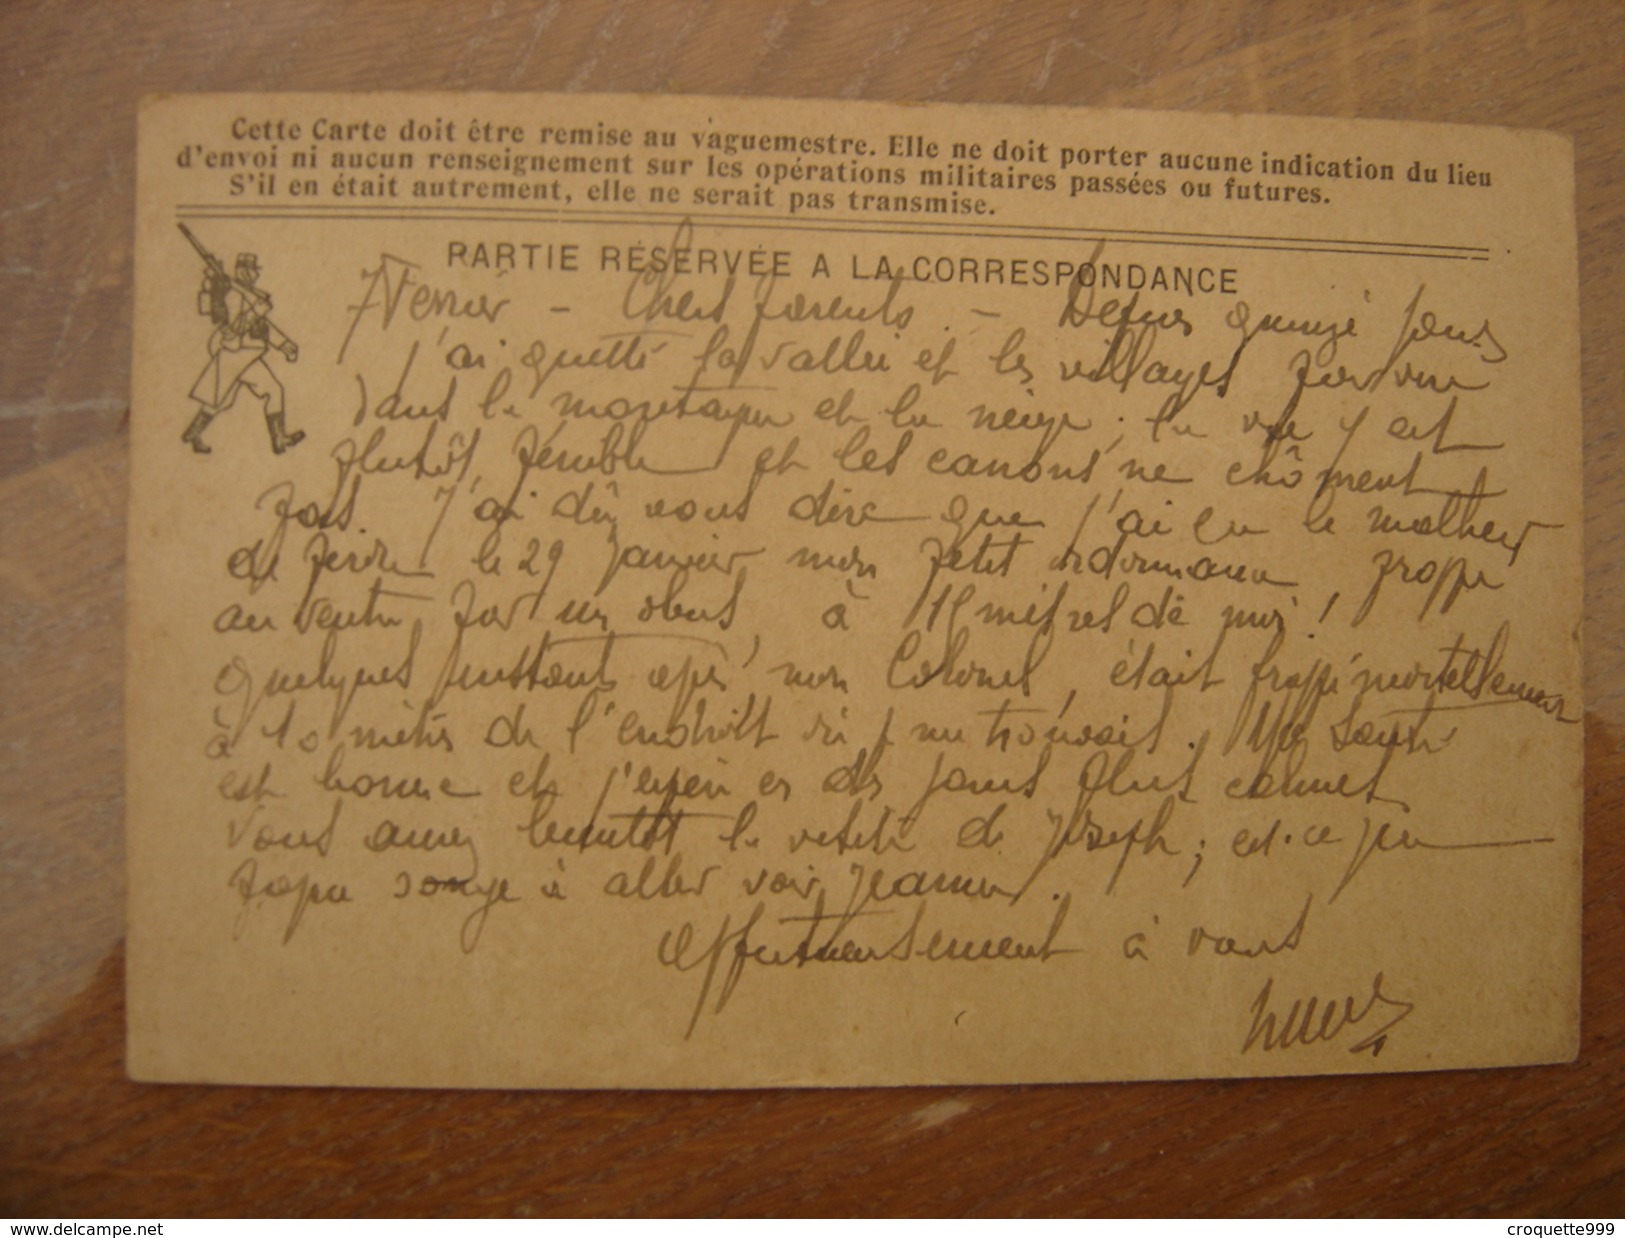 Cette Carte doit être remise au vaguemestre. Elle ne doit porter aucune indication du lieu
d'envoi ni aucun renseignement sur les opérations militaires passées ou futures.
S'il en était autrement, elle ne serait pas transmise.
PARTIE RÉSERVÉE A LA CORRESPONDANCE
7 Février - Chers Parents. - Depuis quinze jours
j'ai quitté la vallée et les villages pour vivre
dans la montagne et la neige; la vie y est
plutôt pénible et les canons ne chôment
pas. J'ai dû vous dire que j'ai eu le malheur
de perdre le 29 janvier mon petit ordonnance, frappé
au ventre par un obus, à 15 mètres de moi!
Quelques instants après mon Colonel, était frappé mortellement
à 10 mètres de l'endroit où je me trouvais. Ma santé
est bonne et j'espère des jours plus calmes
Vous aurez bientôt la visite de Joseph; est-ce que
papa songe à aller voir Jeanne.
Affectueusement à vous
www.delcampe.net
croquette999